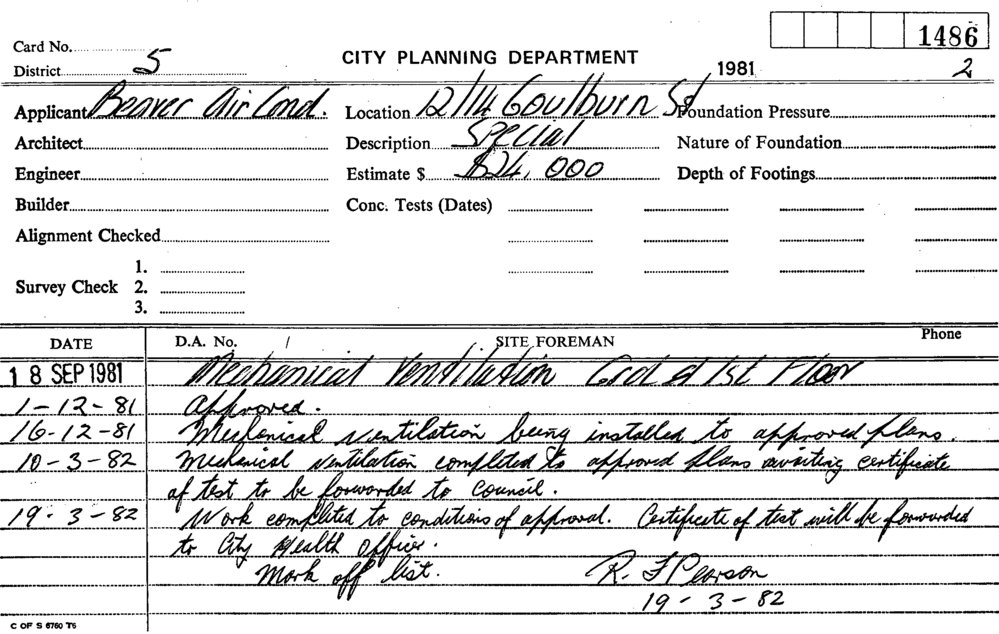 1486
Card No.
District 5
CITY PLANNING DEPARTMENT
1981
2
Applicant Beaver Air Cond.
Location 12/14 Goulburn St
Foundation Pressure
Architect
Description Special
Nature of Foundation
Engineer
Estimate $ $24,000
Depth of Footings
Builder
Conc. Tests (Dates)
Alignment Checked
Survey Check
1.
2.
3.
DATE
D.A. No.
SITE FOREMAN
Phone
18 SEP 1981 Mechanical Ventilation Grd & 1st Floor
1-12-81 Approved.
16-12-81 Mechanical ventilation being installed to approved plans.
10-3-82 Mechanical ventilation completed to approved plans awaiting certificate
of test to be forwarded to council.
19-3-82 Work completed to conditions of approval. Certificate of test will be forwarded
to City Health Officer.
Mark off list.
R. F Pearson
19-3-82
C OF S 6760 T5